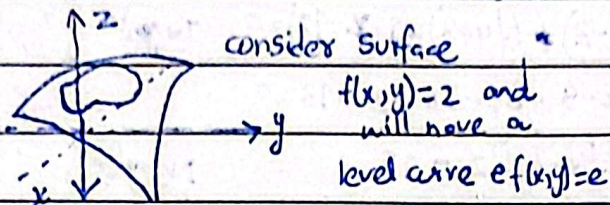 z
consider surface
f(x,y)=z and
will have a
y
level curve ef(x,y)=e
x